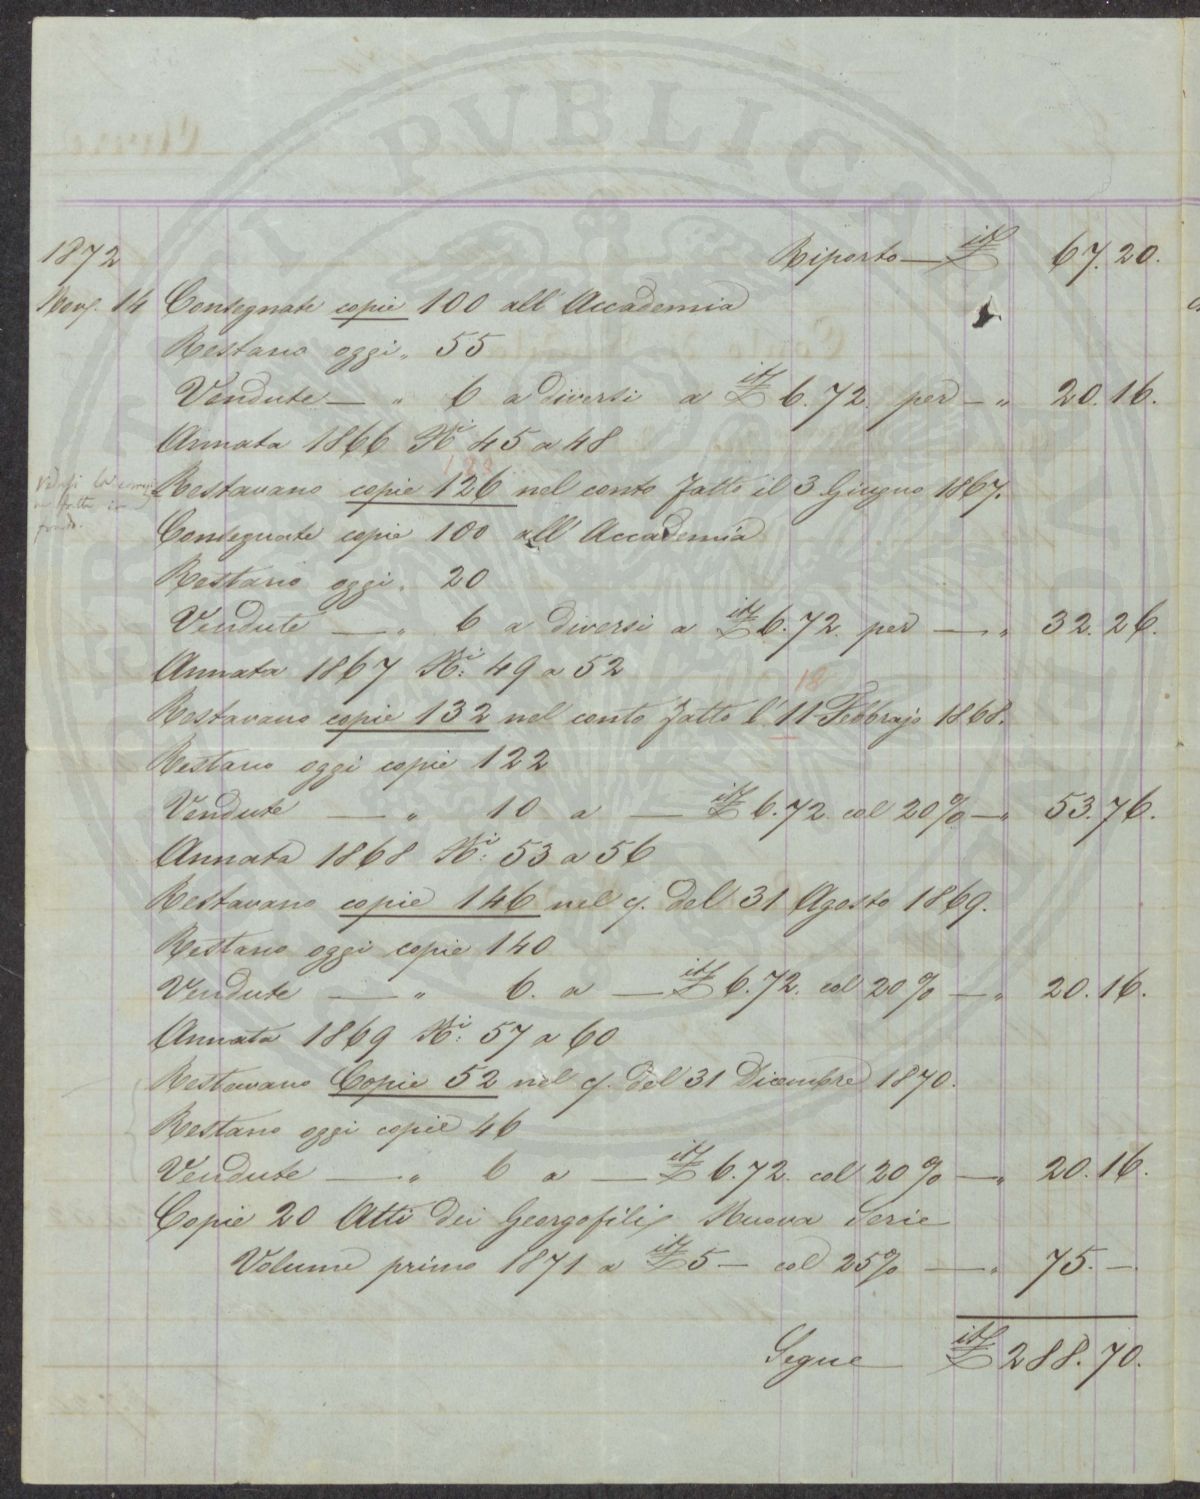 1872 Riporto — it£ 67.20.
Nov. 14 Consegnate copie 100 all' Accademia
Restano oggi „ 55
Vendute — „ 6 a diversi a it£ 6.72. per — „ 20.16.
Annata 1866 Ni 45 a 48
123
Restavano copie 126 nel conto fatto il 3 Giugno 1867.
Vedasi la
fatta in
fondo.
Consegnate copie 100 all' Accademia
Restano oggi „ 20
Vendute — „ 6 a diversi a it£ 6.72. per — „ 32.26.
Annata 1867 Ni: 49 a 52
18
Restavano copie 132 nel conto fatto l' 11 Febbrajo 1868.
Restano oggi copie 122
Vendute — „ 10 a — it£ 6.72. col 20% — „ 53.76.
Annata 1868 Ni: 53 a 56
Restavano copie 146 nel c/. del 31 Agosto 1869.
Restano oggi copie 140
Vendute — „ 6. a — it£ 6.72. col 20% — „ 20.16.
Annata 1869 Ni: 57 a 60
Restavano Copie 52 nel c/. del 31 Dicembre 1870.
Restano oggi copie 46
Vendute — „ 6 a — it£ 6.72. col 20% — „ 20.16.
Copie 20 Atti dei Georgofili Nuova Serie
Volume primo 1871 a it£ 5 — col 25% — „ 75. —
Segue it£ 288.70.
PUBLICA